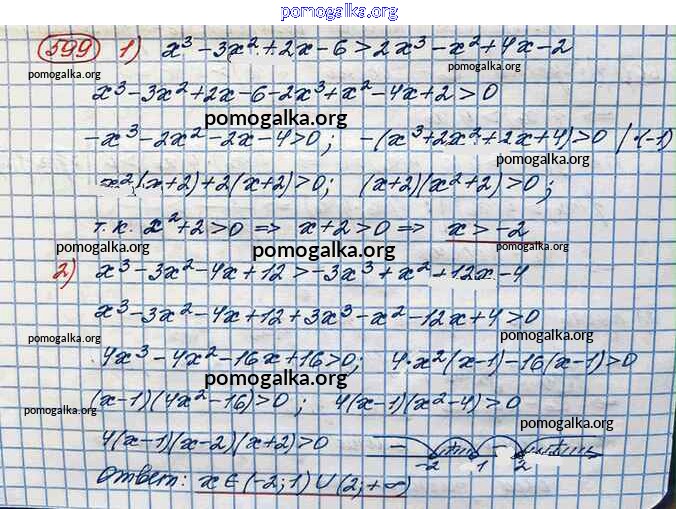 pomogalka.org
599 1) x³-3x²+2x-6>2x³-x²+4x-2
pomogalka.org pomogalka.org
x³-3x²+2x-6-2x³+x²-4x+2>0
pomogalka.org
-x³-2x²-2x-4>0; -(x³+2x²+2x+4)>0 /·(-1)
pomogalka.org
x²(x+2)+2(x+2)>0; (x+2)(x²+2)>0;
pomogalka.org
т.к. x²+2>0 => x+2>0 => x>-2
pomogalka.org pomogalka.org
2) x³-3x²-4x+12>-3x³+x²+12x-4
x³-3x²-4x+12+3x³-x²-12x+4>0
pomogalka.org pomogalka.org
4x³-4x²-16x+16>0; 4·x²(x-1)-16(x-1)>0
pomogalka.org
(x-1)(4x²-16)>0; 4(x-1)(x²-4)>0
pomogalka.org pomogalka.org
4(x-1)(x-2)(x+2)>0 - + - +
-2 1 2
Ответ: x∈(-2;1)∪(2;+∞)